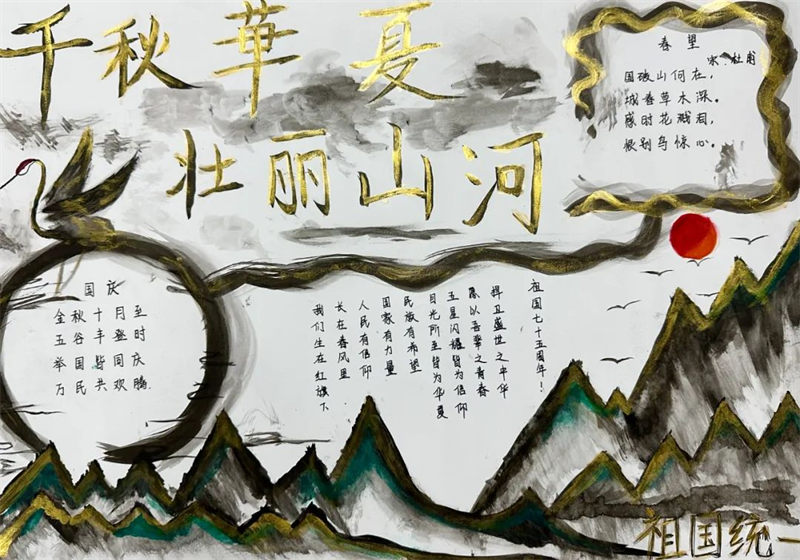 千秋華夏
壮丽山河
春望
杜甫
国破山何在，
城春草木深。
感时花溅泪，
恨别鸟惊心。
国庆
金秋十月至
五谷丰登时
举国皆同庆
万民共欢腾
我们生在红旗下
长在春风里
人民有信仰
国家有力量
民族有希望
目光所至皆为华夏
五星闪耀皆为信仰
愿以吾辈之青春
捍卫盛世之中华
祖国七十五周年！
祖国统一